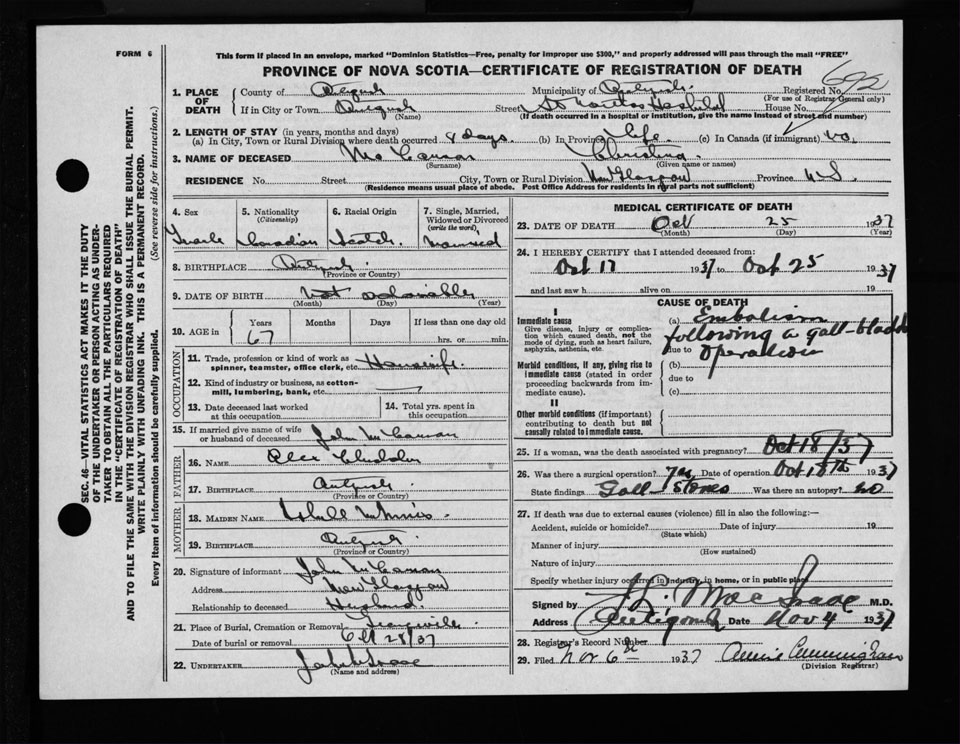 FORM 6
This form if placed in an envelope, marked "Dominion Statistics—Free, penalty for improper use $300," and properly addressed will pass through the mail "FREE"
PROVINCE OF NOVA SCOTIA—CERTIFICATE OF REGISTRATION OF DEATH
692
1. PLACE OF DEATH
County of
Municipality of
Registered No.
(For use of Registrar General only)
If in City or Town
(Name)
Street
House No.
(If death occurred in a hospital or institution, give the name instead of street and number)
2. LENGTH OF STAY (in years, months and days)
(a) In City, Town or Rural Division where death occurred 8 days. (b) In Province life (c) In Canada (if immigrant) no.
3. NAME OF DECEASED Christina
(Surname) (Given name or names)
RESIDENCE No. Street City, Town or Rural Division New Glasgow Province N.S.
(Residence means usual place of abode. Post Office Address for residents in rural parts not sufficient)
4. Sex
5. Nationality (Citizenship) Canadian
6. Racial Origin Scotch
7. Single, Married, Widowed or Divorced (write the word) Married
8. BIRTHPLACE
(Province or Country)
9. DATE OF BIRTH not
(Month) (Day) (Year)
10. AGE in Years Months Days If less than one day old
67 hrs. or min.
OCCUPATION
11. Trade, profession or kind of work as spinner, teamster, office clerk, etc. Housewife
12. Kind of industry or business, as cotton-mill, lumbering, bank, etc.
13. Date deceased last worked at this occupation
14. Total yrs. spent in this occupation
15. If married give name of wife or husband of deceased John
FATHER
16. Name Alex Chisholm
17. BIRTHPLACE
(Province or Country)
MOTHER
18. MAIDEN NAME
19. BIRTHPLACE
(Province or Country)
20. Signature of informant John
Address New Glasgow
Relationship to deceased Husband.
21. Place of Burial, Cremation or Removal
Date of burial or removal Oct 28/37
22. UNDERTAKER
(Name and address)
MEDICAL CERTIFICATE OF DEATH
23. DATE OF DEATH Oct 25 1937
(Month) (Day) (Year)
24. I HEREBY CERTIFY that I attended deceased from:
Oct 17 1937 to Oct 25 1937
and last saw h alive on 19
CAUSE OF DEATH
I
Immediate cause
Give disease, injury or complication which caused death, not the mode of dying, such as heart failure, asphyxia, asthenia, etc.
(a) Embolism
following a gall-bladder
due to operation
Morbid conditions, if any, giving rise to immediate cause (stated in order proceeding backwards from immediate cause).
(b)
due to
(c)
II
Other morbid conditions (if important) contributing to death but not causally related to immediate cause.
25. If a woman, was the death associated with pregnancy? Oct 18/37
26. Was there a surgical operation? yes Date of operation Oct 18th 1937
State findings Gall Stones Was there an autopsy? no
27. If death was due to external causes (violence) fill in also the following:—
Accident, suicide or homicide? Date of injury 19
(State which)
Manner of injury
(How sustained)
Nature of injury
Specify whether injury occurred in industry, in home, or in public place
Signed by MacIsaac M.D.
Address Antigonish Date Nov 4 1937
28. Registrar's Record Number
29. Filed Nov 6th 1937 Annie Cunningham
(Division Registrar)
SEC. 46—VITAL STATISTICS ACT MAKES IT THE DUTY
OF THE UNDERTAKER OR PERSON ACTING AS UNDER-
TAKER TO OBTAIN ALL THE PARTICULARS REQUIRED
IN THE "CERTIFICATE OF REGISTRATION OF DEATH"
AND TO FILE THE SAME WITH THE DIVISION REGISTRAR WHO SHALL ISSUE THE BURIAL PERMIT.
WRITE PLAINLY WITH UNFADING INK. THIS IS A PERMANENT RECORD.
Every item of information should be carefully supplied. (See reverse side for instructions.)